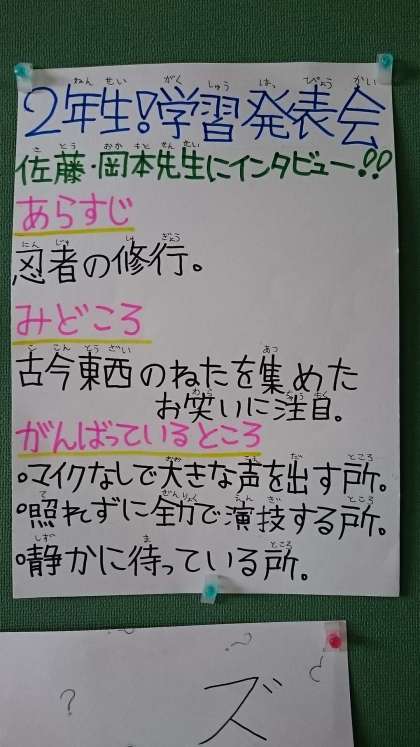 2年生！学習発表会
佐藤・岡本先生にインタビュー!!
あらすじ
忍者の修行。
みどころ
古今東西のねたを集めた
お笑いに注目。
がんばっているところ
○マイクなしで大きな声を出す所。
○照れずに全力で演技する所。
○静かに待っている所。
?
ズ